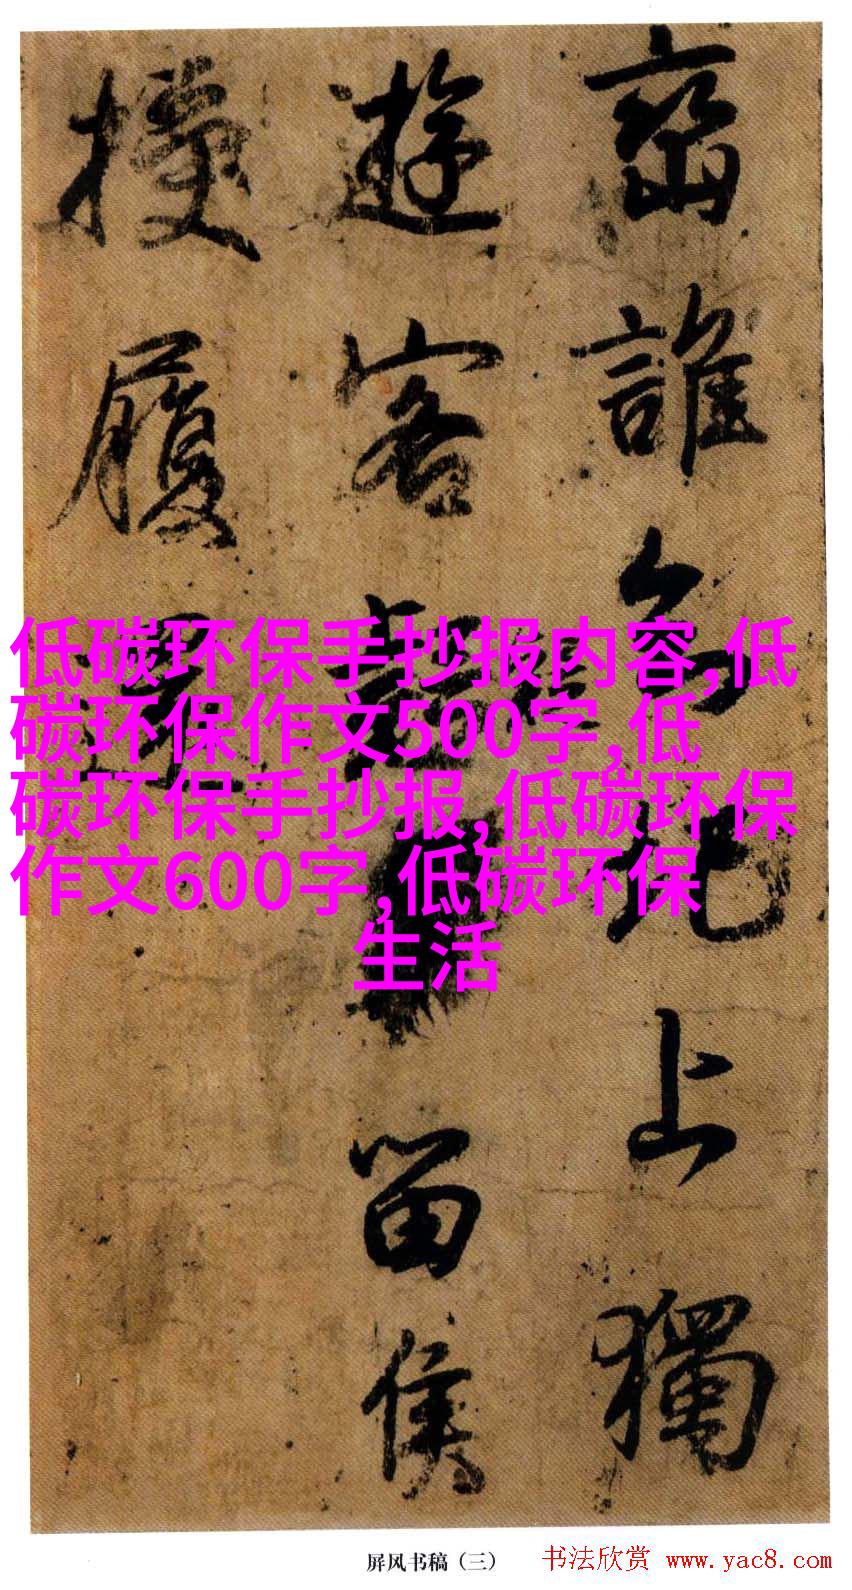 誰 地上獨
遊客 留侯
履
低碳环保手抄报内容,低
碳环保作文500字,低
碳环保手抄报,低碳环保
作文600字,低碳环保
生活
屏风书稿（三）
书法欣赏 www.yac8.com